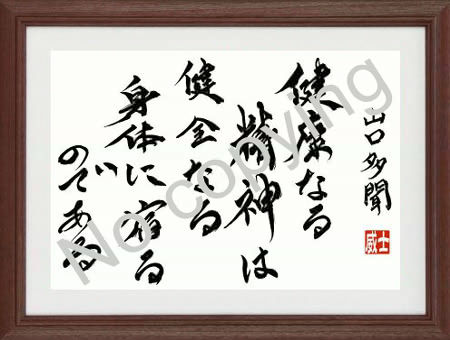 山口多聞
威士
健康なる
精神は
健全なる
身体に宿る
のである
No copying